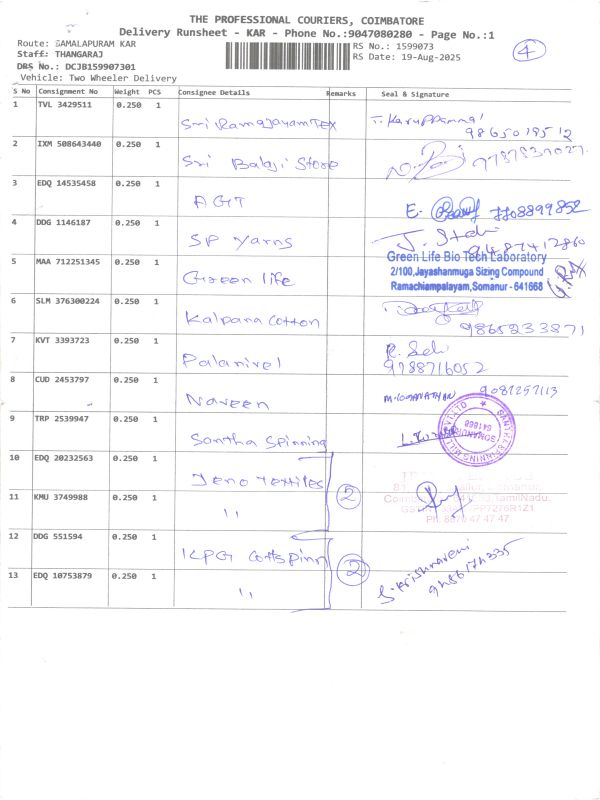 THE PROFESSIONAL COURIERS, COIMBATORE
Delivery Runsheet - KAR - Phone No.:9047080280 - Page No.:1
Route: SAMALAPURAM KAR
RS No.: 1599073
4
Staff: THANGARAJ
RS Date: 19-Aug-2025
DRS No.: DCJB159907301
Vehicle: Two Wheeler Delivery
S No Consignment No Weight PCS Consignee Details Remarks Seal & Signature
1 TVL 3429511 0.250 1 Sri Ramajayam Tex T. Karuppannal 9865018512
2 IXM 508643440 0.250 1 Sri Balaji Store 9787837027
3 EDQ 14535458 0.250 1 AGT E. 7708899852
4 DDG 1146187 0.250 1 SP Yarns 9487412860
5 MAA 712251345 0.250 1 Green life
Green Life Bio Tech Laboratory
2/100,Jayashanmuga Sizing Compound
Ramachiampalayam,Somanur - 641668
6 SLM 376300224 0.250 1 Kalpana Cotton 9865233871
7 KVT 3393723 0.250 1 Palanivel R. Selvi 9788716052
8 CUD 2453797 0.250 1 Naveen M. LOGANATHAN 9087257113
9 TRP 2539947 0.250 1 Santha Spinning
SANTHA SPINNING MILLS
SOMANUR
641668
10 EDQ 20232563 0.250 1 Jeno Textiles 2
11 KMU 3749988 0.250 1 "
TamilNadu.
Ph. 8870 47 47 47
12 DDG 551594 0.250 1 KPG Cottspinn 2
13 EDQ 10753879 0.250 1 " S. Krishnaveni
9486174335